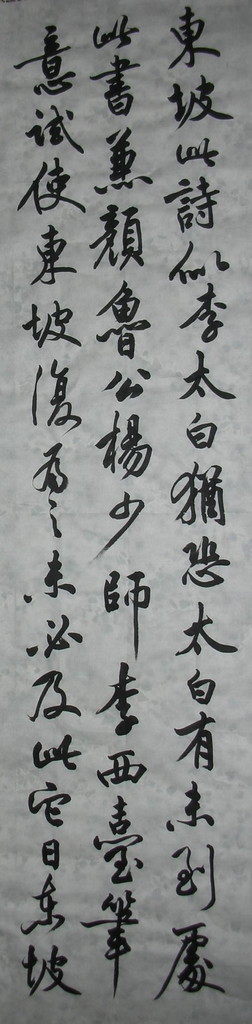 東坡此詩似李太白猶恐太白有未到處
此書兼顔魯公楊少師李西臺筆
意試使東坡復為之未必及此它日東坡